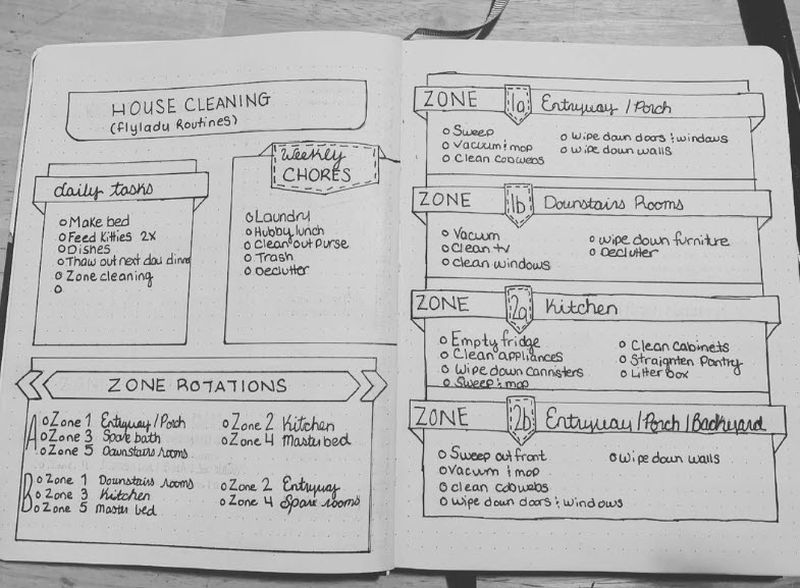 HOUSE CLEANING
(flylady Routines)
daily tasks
Make bed
Feed Kitties 2x
Dishes
Thaw out next day dinner
Zone cleaning
Weekly
CHORES
Laundry
Hubby lunch
Clean out purse
Trash
Declutter
ZONE ROTATIONS
A
Zone 1 Entryway/Porch
Zone 3 Spare bath
Zone 5 Downstairs rooms
Zone 2 Kitchen
Zone 4 Master bed
B
Zone 1 Downstairs rooms
Zone 3 Kitchen
Zone 5 Master bed
Zone 2 Entryway
Zone 4 Spare rooms
ZONE 1a Entryway/Porch
Sweep
Vacuum & mop
Clean cobwebs
Wipe down doors & windows
Wipe down walls
ZONE 1b Downstairs Rooms
Vacuum
Clean tv
Clean windows
Wipe down furniture
Declutter
ZONE 2a Kitchen
Empty fridge
Clean appliances
Wipe down cannisters
Sweep & mop
Clean cabinets
Straighten Pantry
Litter box
ZONE 2b Entryway/Porch/Backyard
Sweep out front
Vacuum & mop
Clean cobwebs
Wipe down doors & windows
Wipe down walls